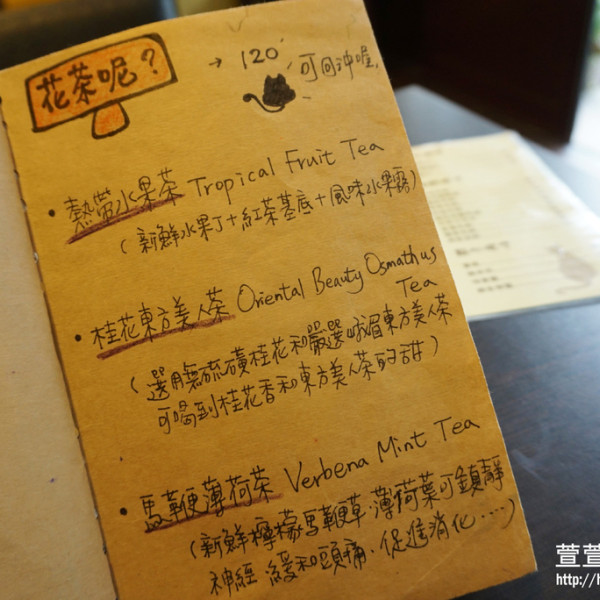 花茶呢？
→ 120
可回沖喔,
• 熱帶水果茶 Tropical Fruit Tea
(新鮮水果丁+紅茶基底+風味水果露)
• 桂花東方美人茶 Oriental Beauty Osmathus
Tea
(選用無硫磺桂花和嚴選峨眉東方美人茶
可喝到桂花香和東方美人茶的甜)
• 馬鞭薄荷茶 Verbena Mint Tea
(新鮮檸檬馬鞭草.薄荷葉可鎮靜
神經.緩和頭痛.促進消化....)
萱萱
http://h